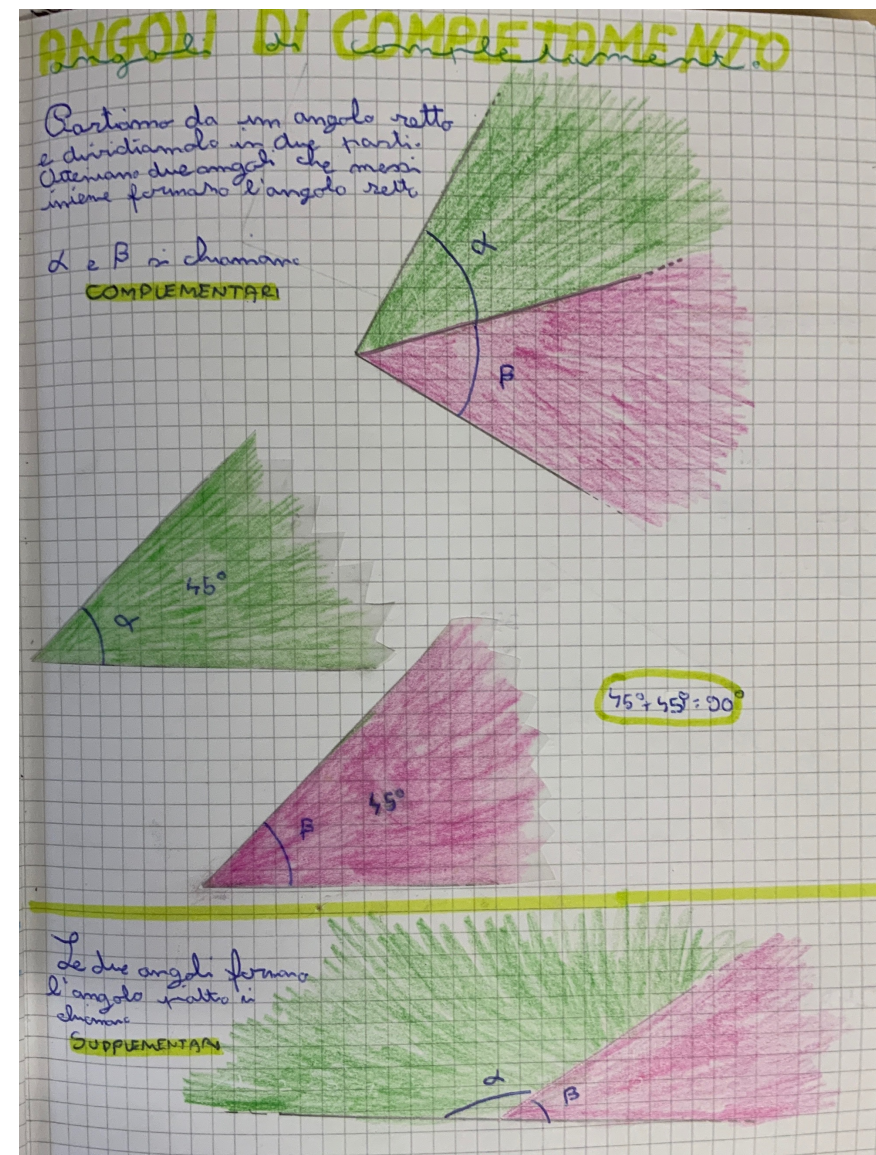 ANGOLI DI COMPLETAMENTO
angoli di completamento.
Partiamo da un angolo retto
e dividiamolo in due parti.
Otteniamo due angoli che messi
insieme formano l'angolo retto
α e β si chiamano
COMPLEMENTARI
α
β
45°
α
45°+45°=90°
45°
β
Se due angoli formano
l'angolo piatto si
chiamano
SUPPLEMENTARI
α
β